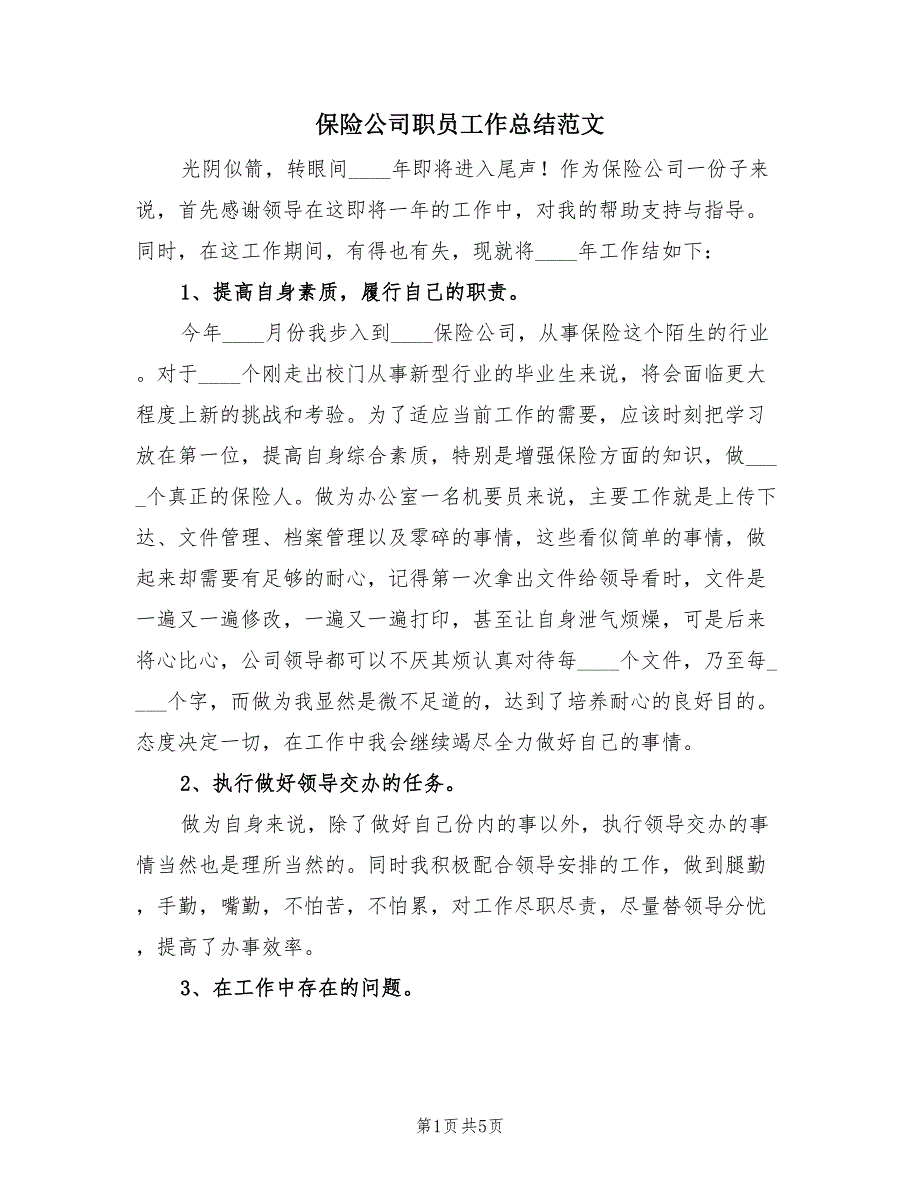 保险公司职员工作总结范文
光阴似箭，转眼间____年即将进入尾声！作为保险公司一份子来
说，首先感谢领导在这即将一年的工作中，对我的帮助支持与指导。
同时，在这工作期间，有得也有失，现就将____年工作结如下：
1、提高自身素质，履行自己的职责。
今年____月份我步入到____保险公司，从事保险这个陌生的行业
。对于____个刚走出校门从事新型行业的毕业生来说，将会面临更大
程度上新的挑战和考验。为了适应当前工作的需要，应该时刻把学习
放在第一位，提高自身综合素质，特别是增强保险方面的知识，做___
_个真正的保险人。做为办公室一名机要员来说，主要工作就是上传下
达、文件管理、档案管理以及零碎的事情，这些看似简单的事情，做
起来却需要有足够的耐心，记得第一次拿出文件给领导看时，文件是
一遍又一遍修改，一遍又一遍打印，甚至让自身泄气烦燥，可是后来
将心比心，公司领导都可以不厌其烦认真对待每____个文件，乃至每_
___个字，而做为我显然是微不足道的，达到了培养耐心的良好目的。
态度决定一切，在工作中我会继续竭尽全力做好自己的事情。
2、执行做好领导交办的任务。
做为自身来说，除了做好自己份内的事以外，执行领导交办的事
情当然也是理所当然的。同时我积极配合领导安排的工作，做到腿勤
，手勤，嘴勤，不怕苦，不怕累，对工作尽职尽责，尽量替领导分忧
，提高了办事效率。
3、在工作中存在的问题。
第1页共5页